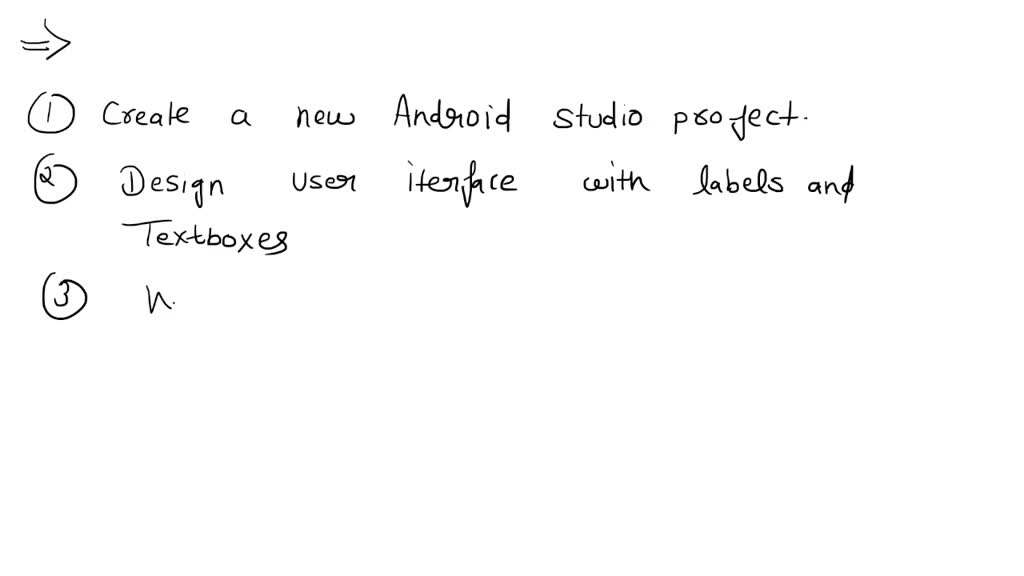 ⇒
① Create a new Android studio project.
② Design user iterface with labels and
Textboxes
③